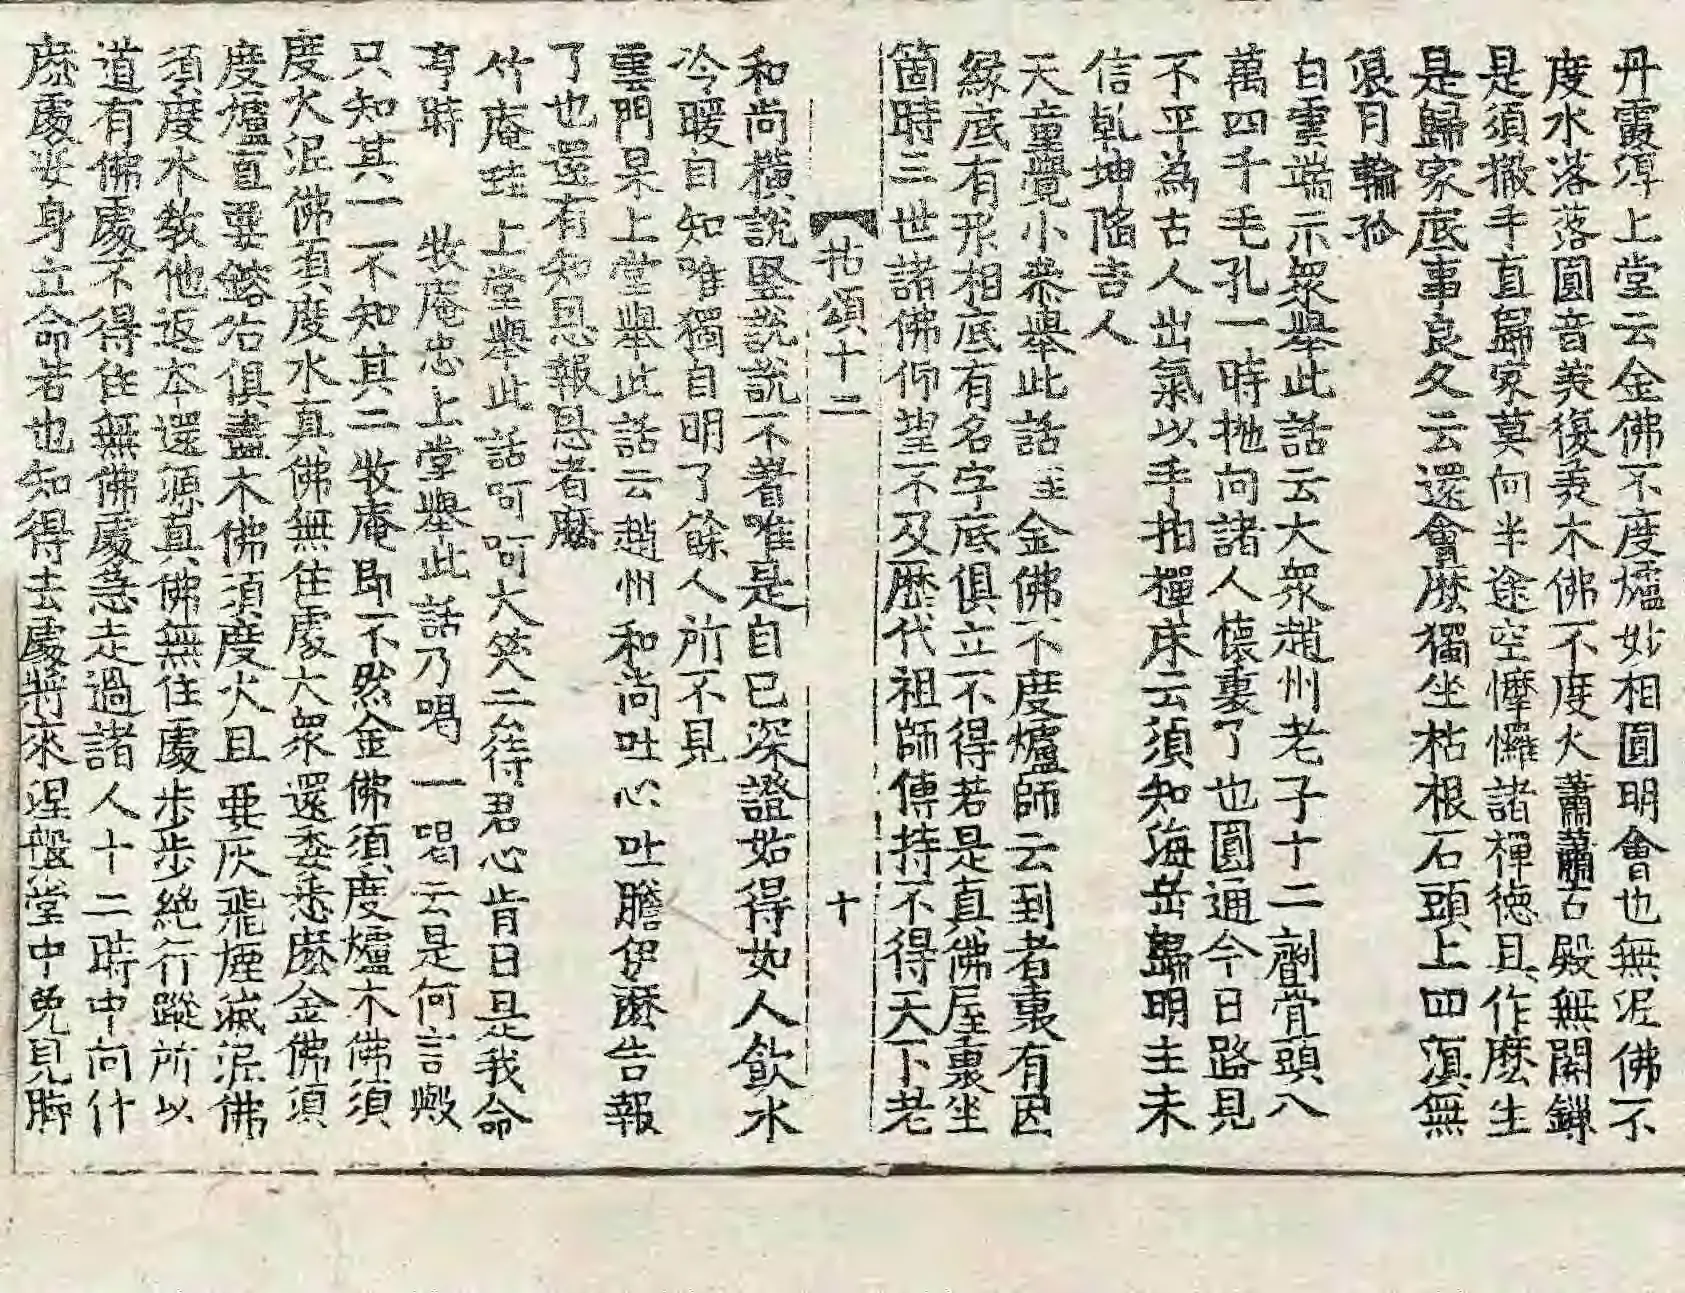 丹霞淳上堂云金佛不度爐妙相圓明會也無泥佛不
度水落落圓音美復美木佛不度火蕭蕭古殿無關鏁
是須撒手直歸家莫向半途空懡㦬諸禪德且作麽生
是歸家底事良久云還會麽獨坐枯根石頭上四溟無
浪月輪孤
白雲端示衆舉此話云大衆趙州老子十二劑骨頭八
萬四千毛孔一時拋向諸人懷裏了也圓通今日路見
不平爲古人出氣以手拍禪床云須知海岳歸明主未
信乹坤陷吉人
天童覺小叅舉此話至金佛不度爐師云到者裏有因
緣底有形相底有名字底俱立不得若是真佛屋裏坐
箇時三世諸佛仰望不及歷代祖師傳持不得天下老
拈頌十二 十
和尚橫說竪說說不着唯是自已深證始得如人飮水
冷暖自知唯獨自明了餘人所不見
雲門杲上堂舉此話云趙州和尚吐心吐膽伊麽告報
了也還有知恩報恩者麽
竹庵珪上堂舉此話呵呵大笑云待君心肯日且是我命
亨時
牧庵忠上堂舉此話乃喝一喝云是何言歟
只知其一不知其二牧庵即不然金佛須度爐木佛須
度火泥佛須度水真佛無住處大衆還委悉麽金佛須
度爐直要鎔冶俱盡木佛須度火且要灰飛煙滅泥佛
須度水敎他返本還源真佛無住處步步絶行蹤所以
道有佛處不得住無佛處急走過諸人十二時中向什
麽處安身立命若也知得去處將來涅槃堂中免見脚